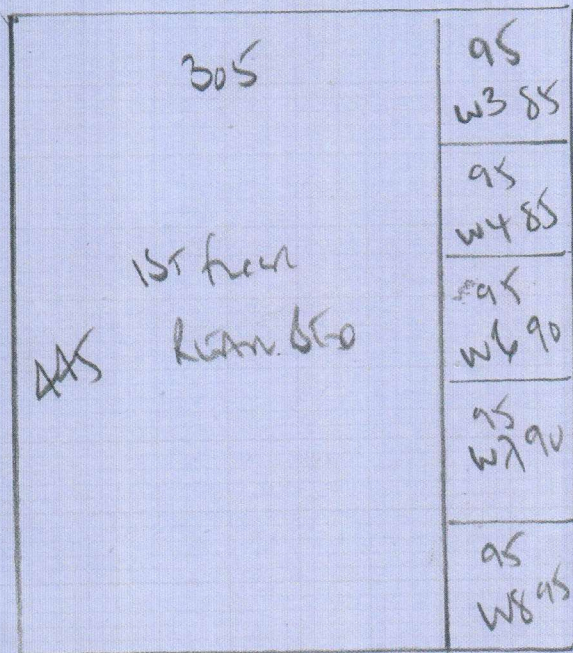 305
1ST floor
REAR BED
445
95
W3 85
95
W4 85
95
W6 90
95
W7 90
95
W8 95